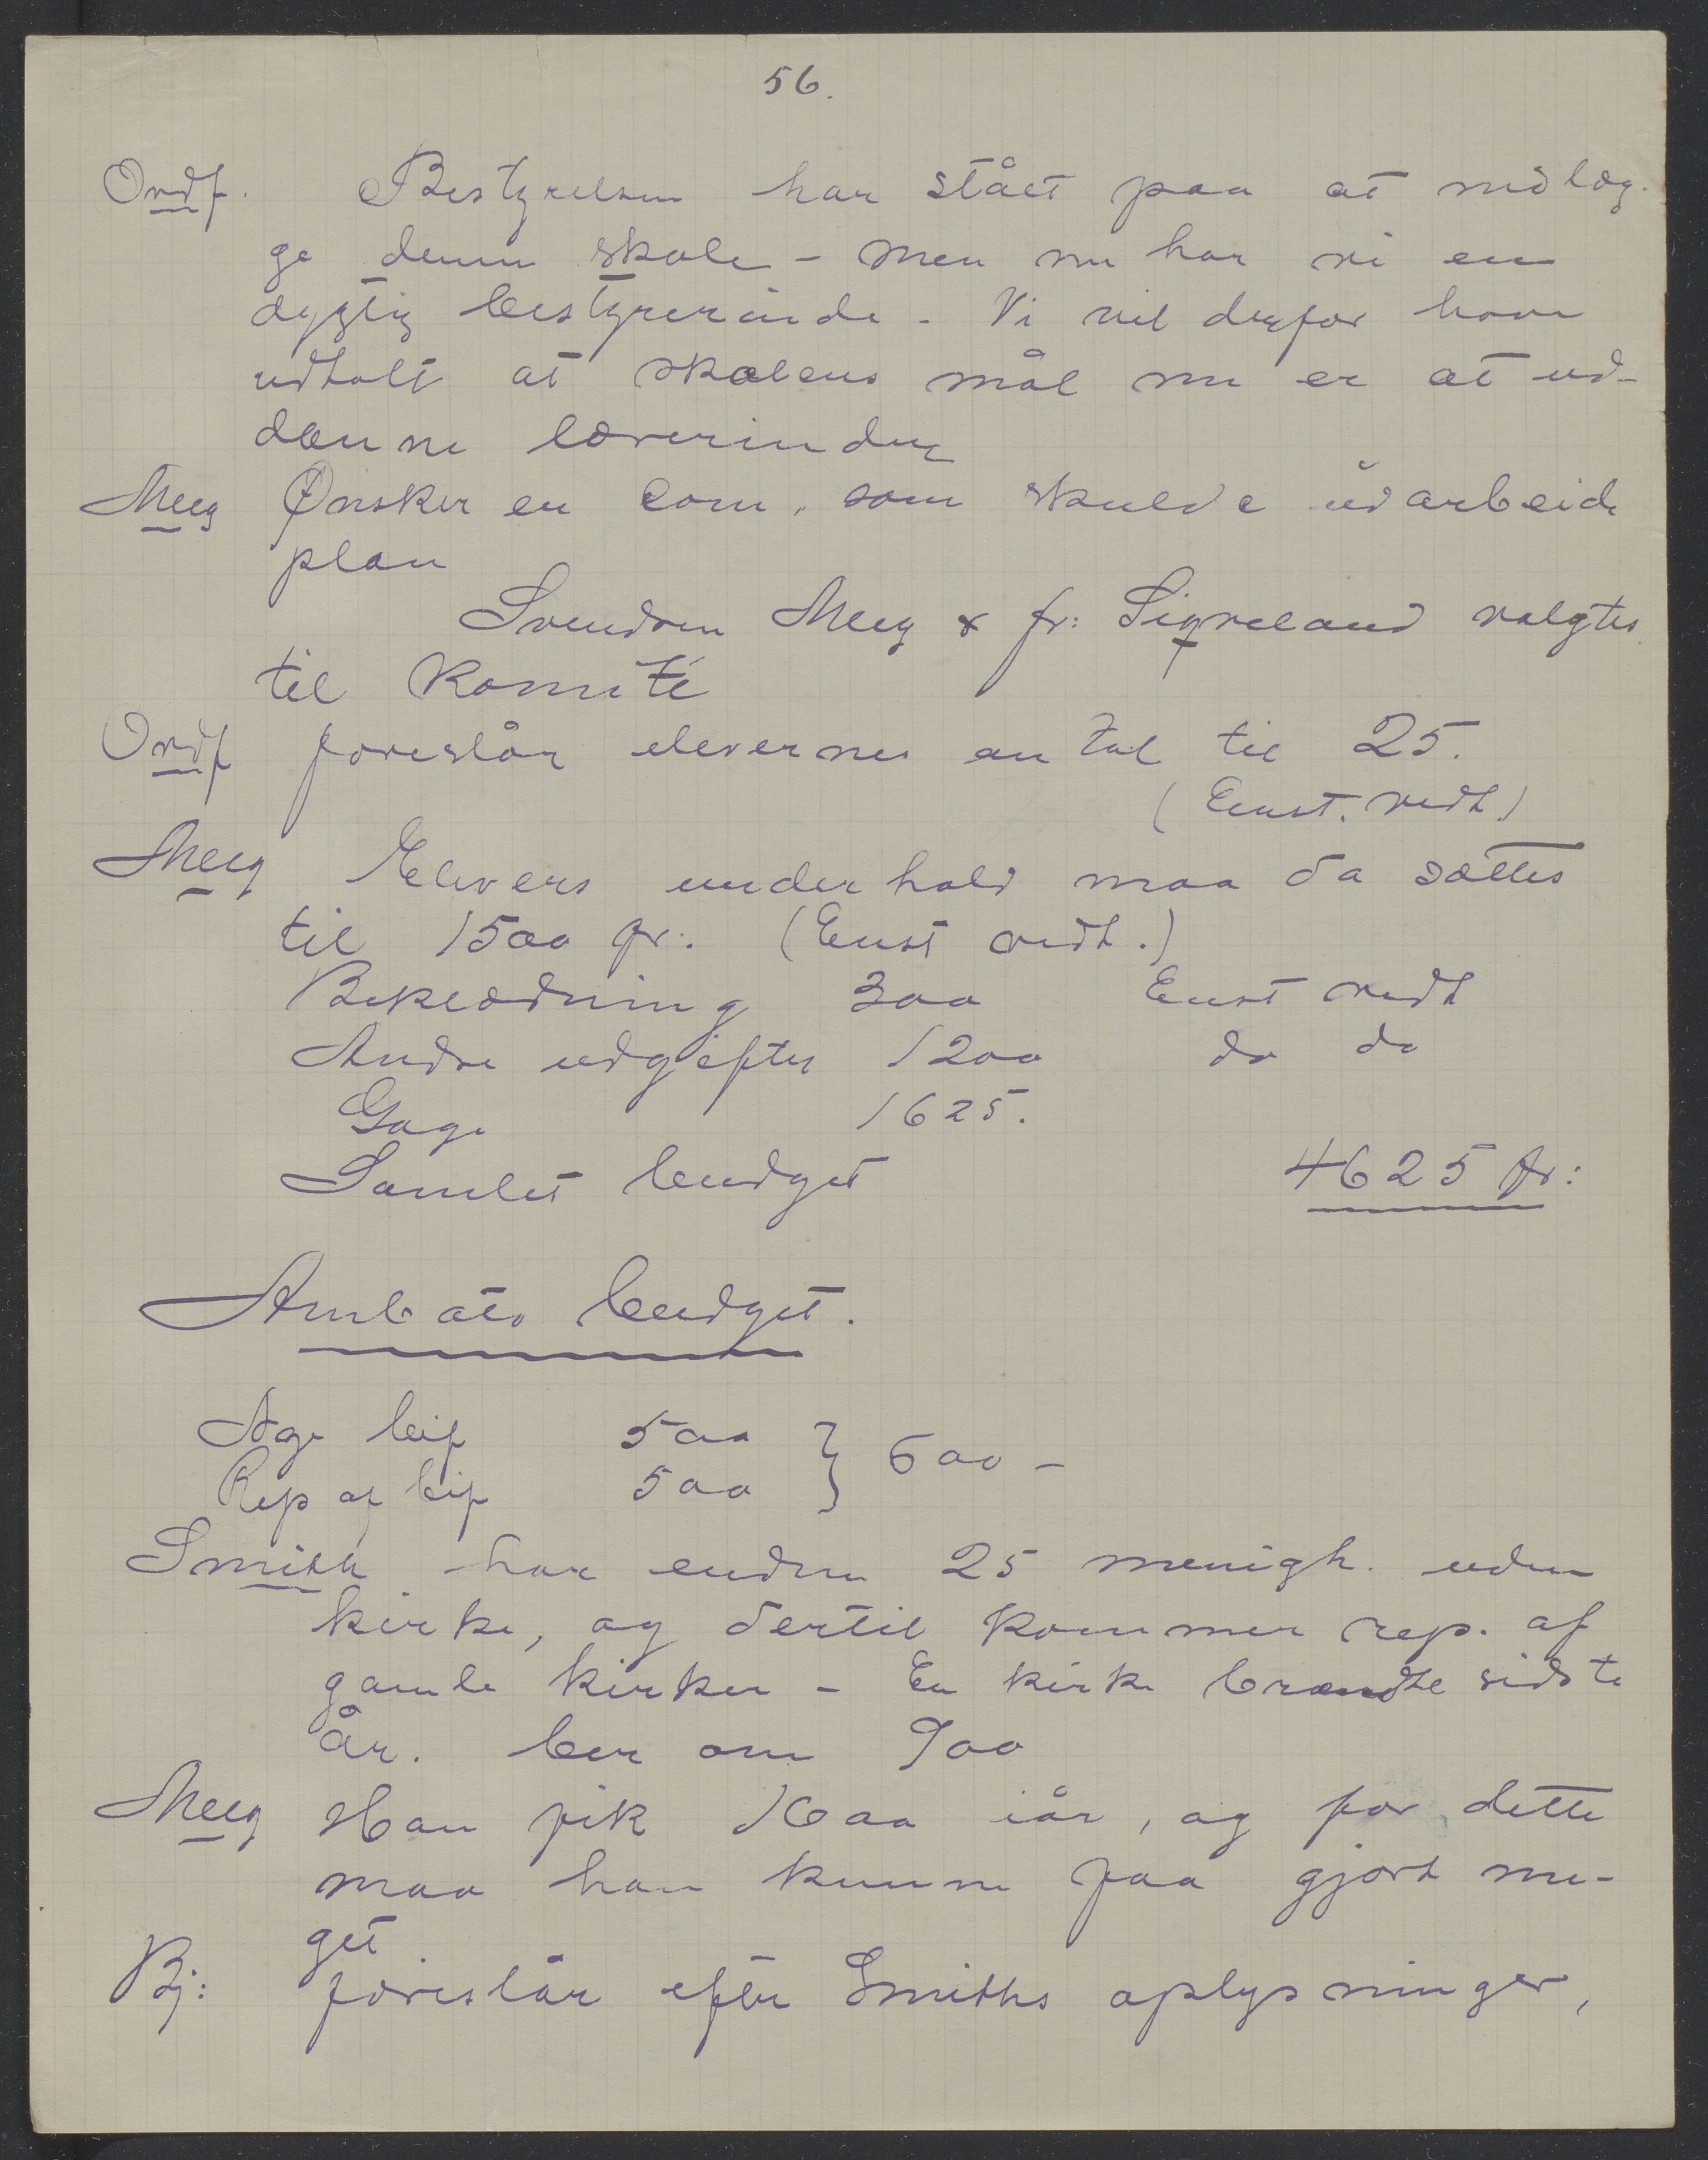 56.
Ordf. Bestyrelsen har stået paa at nedlæg-
ge denne skole - men nu har vi en
dygtig bestyrerinde. Vi vil derfor have
udtalt at skolens mål nu er at ud-
danne lærerinder
Meeg Ønsker en com. som skulde udarbeide
plan
Svendsen Meeg & fr: Sigveland valgtes
til komité
Ordf foreslår elevernes antal til 25.
(Enst. vedt.)
Meeg Elevers underhold maa da sættes
til 1500 fr. (Enst vedt.)
Beklædning 300 Enst vedt
Andre udgifter 1200 do do
Gage 1625.
Samlet budget 4625 fr:
Ambato budget.
Nye 500 } 600 -
Rep af 500
Smith har endnu 25 menigh. uden
kirke, og dertil kommer rep. af
gamle kirker - En kirke brændte sidste
år. ber om 900
Meeg Han fik 1600 iår, og for dette
maa han kunne faa gjort me-
get
Bj: foreslår efter Smiths oplysninger,